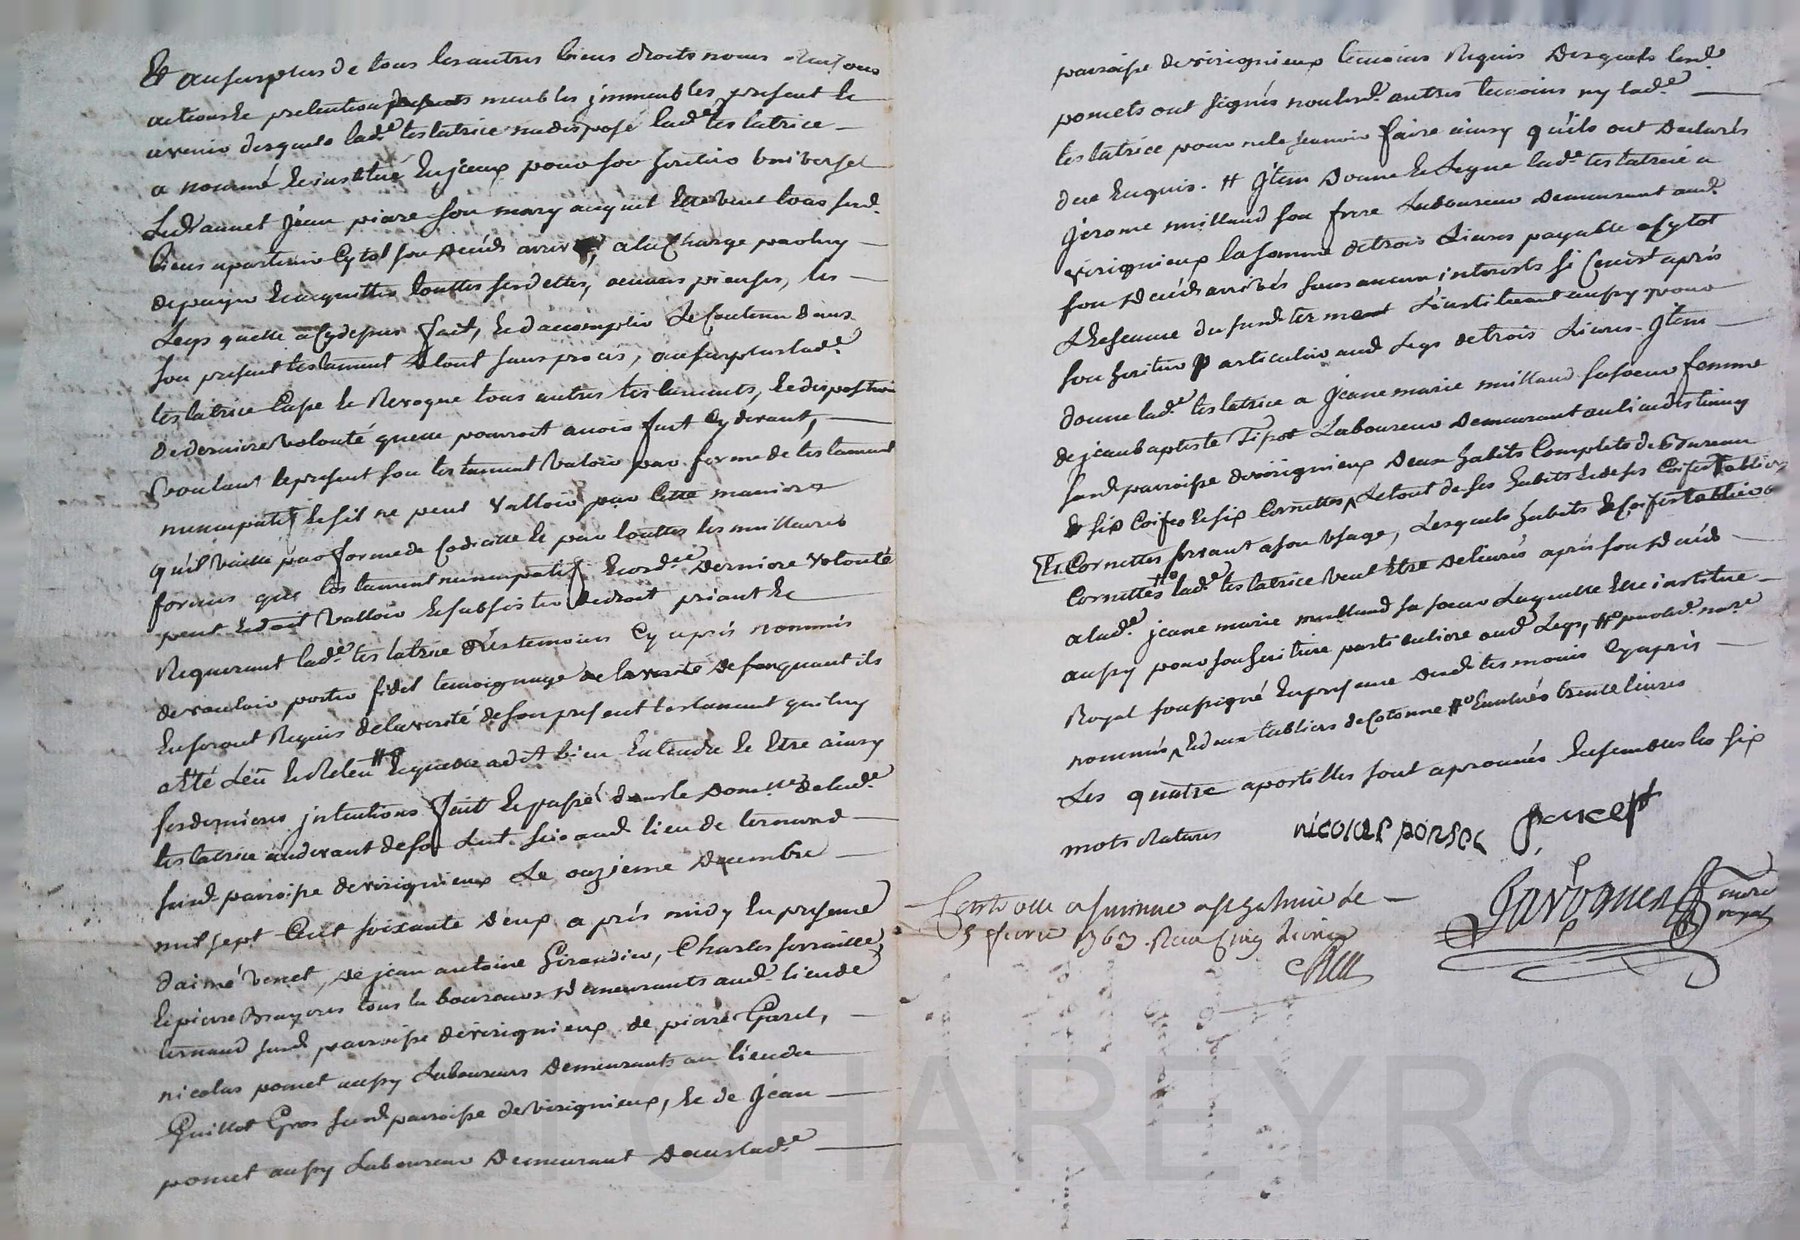 Et au surplus de tous les autres biens droits noms raisons
actions et pretentions meubles jmmeubles present et
avenir desquels lad.e testatrice na disposé lad.e testatrice
a nommé et institué Enjceux pour son heritier Universel
Led annet jean piare son mary auquel Elle veut tous sesd.
biens apartenir sytot son deces arrivé, a la Charge par luy
de payer et acquitter touttes ses dettes, oeuvres pieuses, les
Legs quelle a Cydessus fait, et d'accomplir le Contenu dans
son present testament Le tout sans procés, au surplus lad.e
testatrice Casse et Revoque tous autres testaments, et disposition
de derniere volonté quelle pouroit avoir fait Cydevant,
voulant le present son testament valoir par forme de testament
nuncupatif et sil ne peut valloir par Cette maniere
qu'il vaille par forme de Codicille et par touttes les meilleures
formes que testament nuncupatif et ord.re derniere volonté
peut et doit valloir et subsister de droit priant et
Requerant lad.e testatrice Les temoins Cy aprés nommés
de vouloir porter fidel temoignage de la verité de
Enseront Requis de la verité de son present testament qui luy
a Eté Leü et Releu # Laquelle a dit bien Entendre et Etre ainsy
ses dernieres jntentions fait et passé dans le Dom.lle de lad.e
testatrice audevant de son Lit. sis aud. lieu de ternand
susd. parroisse de virignieux Le onzieme decembre
mil sept Cent soixante deux a prés midy En presence
d'aimé venet, de jean antoine Girandier, Charles ferraille
et pierre tous laboureurs demeurants aud. lieu de
ternand susd. parroisse de virignieux de pierre Garel,
nicolas pomet aussy Laboureurs demeurants au lieu du
Guillot Gros susd. parroisse de virignieux, et de Jean
pomet aussy Laboureur demeurant dans lad.e
parroisse de virignieux temoins Requis desquels lesd.
pomets ont signés non lesd. autres temoins ny lad.e
testatrice pour ne le scavoir faire ainsy qu'ils ont declarés
due Enquis. # Jtem donne et Legue lad.e testatrice a
jerome milland son frere Laboureur demeurant aud.
virignieux la somme de trois Livres payable asytot
son deces arrivés sans aucun interests si Ce n'est aprés
Lecheance dususd. terme Linstituant aussy pour
son heritier particulier aud. Legs de trois Livres. Jtem
donne lad.e testatrice a jeane marie milland sa soeur femme
de jean baptiste Tipot Laboureur demeurant au lieu
susd. parroisse de virignieux deux habits Complets de Bureau
et six Coifes et six Cornettes, Le tout de ses habits et de ses Coifes tabliers
et Cornettes servant a son usage, Lesquels habits et Coifes tabliers
Cornettes #o lad.e testatrice veut Etre delivrés aprés son deces
a lad.e jeane marie milland sa soeur Laquelle Elle institue
aussy pour son heritiere particuliere aud. Legs, #o pardev.t no.re
Royal soussigné En presence desd. temoins Cy aprés
nommés, et deux tabliers de Cotonne #o Evalués trente livres
Les quatre apostilles sont aprouvés Ensembles les six
mots Raturés nicolas ponset poncet
Javogues no.re royal
Controllé a st galmie le
5 fevrier 1763. Reçu Cinq livres